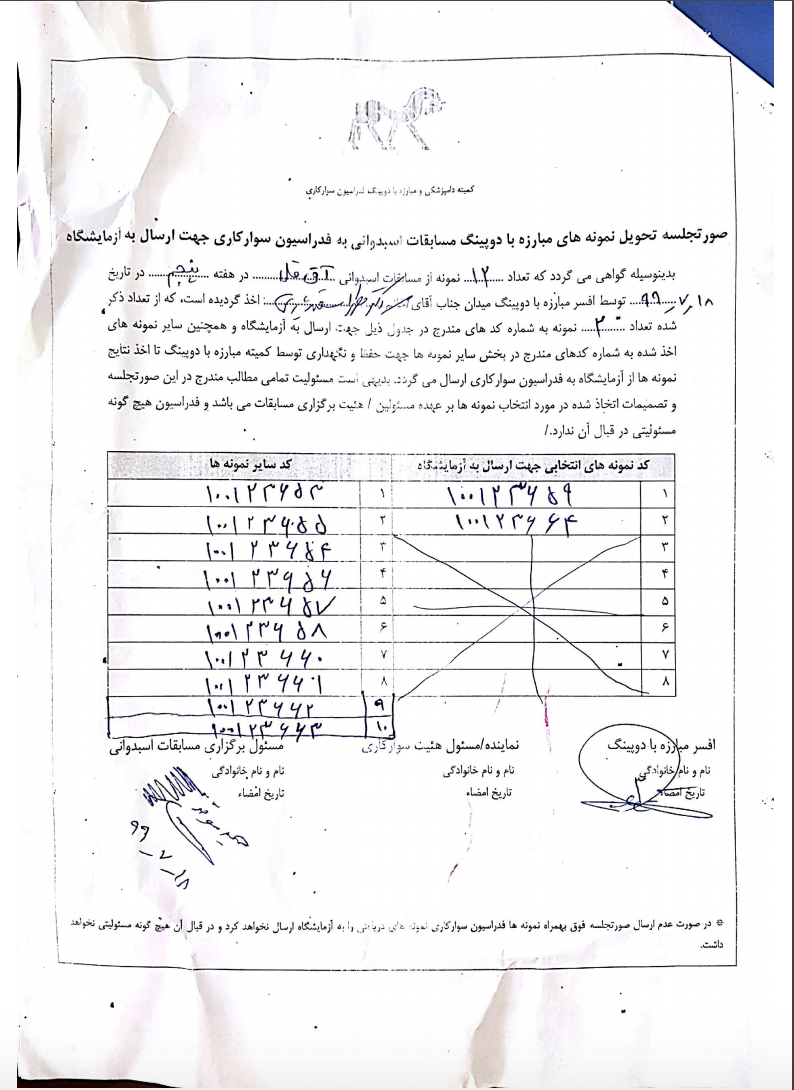 کمیته دامپزشکی و مبارزه با دوپینگ فدراسیون سوارکاری
صورتجلسه تحویل نمونه های مبارزه با دوپینگ مسابقات اسبدوانی به فدراسیون سوارکاری جهت ارسال به آزمایشگاه
بدینوسیله گواهی می گردد که تعداد ....۱۲.... نمونه از مسابقات اسبدوانی ..آق قلا.......... در هفته ....پنجم....... در تاریخ
۹۹٫۷٫۱۸ توسط افسر مبارزه با دوپینگ میدان جناب آقای اخذ گردیده است، که از تعداد ذکر
شده تعداد ....۲.... نمونه به شماره کد های مندرج در جدول ذیل جهت ارسال به آزمایشگاه و همچنین سایر نمونه های
اخذ شده به شماره کدهای مندرج در بخش سایر نمونه ها جهت حفظ و نگهداری توسط کمیته مبارزه با دوپینگ تا اخذ نتایج
نمونه ها از آزمایشگاه به فدراسیون سوارکاری ارسال می گردد. بدیهی است مسئولیت تمامی مطالب مندرج در این صورتجلسه
و تصمیمات اتخاذ شده در مورد انتخاب نمونه ها بر عهده مسئولین / هئیت برگزاری مسابقات می باشد و فدراسیون هیچ گونه
مسئولیتی در قبال آن ندارد./
کد نمونه های انتخابی جهت ارسال به آزمایشگاه کد سایر نمونه ها
۱ ۱۰۰۱۲۳۶۵۹ ۱ ۱۰۰۱۲۳۶۵۳
۲ ۱۰۰۱۲۳۶۶۴ ۲ ۱۰۰۱۲۳۶۵۵
۳ ۳ ۱۰۰۱۲۳۶۵۴
۴ ۴ ۱۰۰۱۲۳۶۵۶
۵ ۵ ۱۰۰۱۲۳۶۵۷
۶ ۶ ۱۰۰۱۲۳۶۵۸
۷ ۷ ۱۰۰۱۲۳۶۶۰
۸ ۸ ۱۰۰۱۲۳۶۶۱
۹ ۱۰۰۱۲۳۶۶۲
۱۰ ۱۰۰۱۲۳۶۶۳
افسر مبارزه با دوپینگ نماینده/مسئول هئیت سوارکاری مسئول برگزاری مسابقات اسبدوانی
نام و نام خانوادگی نام و نام خانوادگی نام و نام خانوادگی
تاریخ امضاء تاریخ امضاء تاریخ امضاء
۹۹_۷_۱۸
※ در صورت عدم ارسال صورتجلسه فوق بهمراه نمونه ها فدراسیون سوارکاری نمونه های دریافتی را به آزمایشگاه ارسال نخواهد کرد و در قبال آن هیچ گونه مسئولیتی نخواهد
داشت.